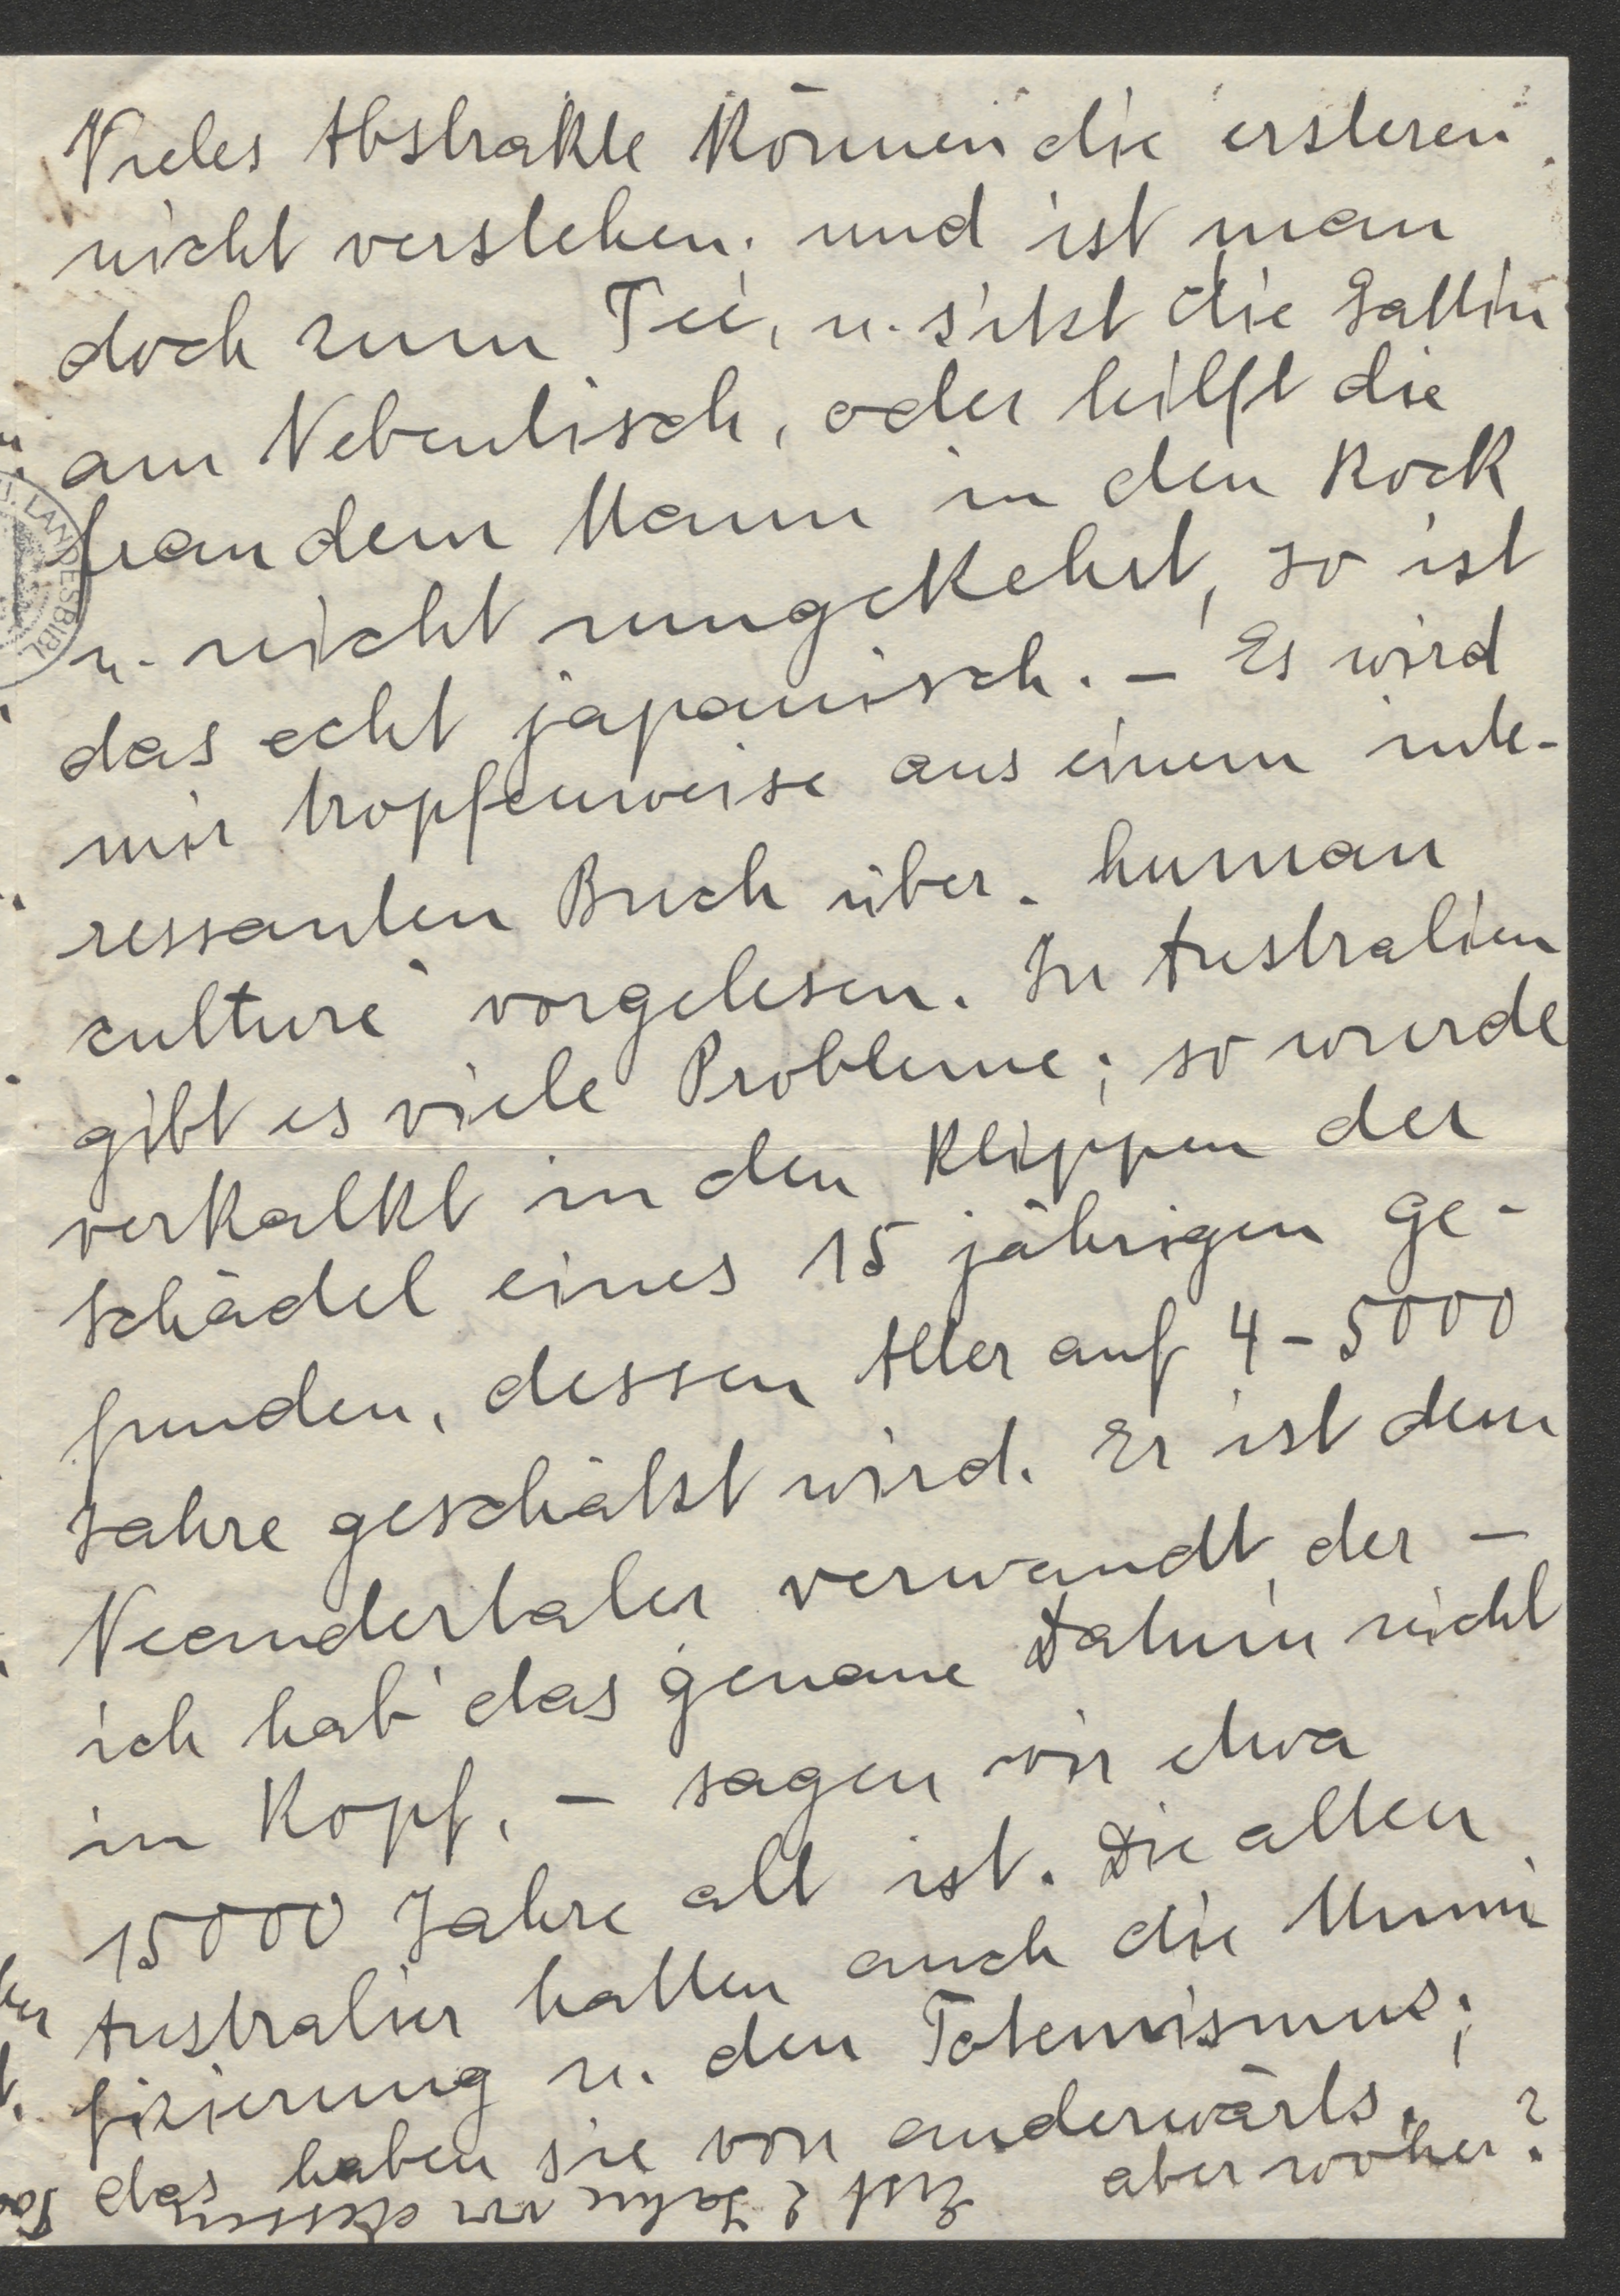 Vieles Abstrakte können die ersteren
nicht verstehen. und ist man
doch zum Tee, u. sitzt die Gattin
am Nebentisch, oder hilft die
frau dem Mann in den Rock
u. nicht umgekehrt, so ist
das echt japanisch. – Es wird
mir tropfenweise aus einem inte-
ressanten Buch über „human
culture" vorgelesen. In Australien
gibt es viele Probleme; so wurde
verkalkt in den Klippen der
Schädel eines 15 jährigen ge-
funden, dessen Alter auf 4–5000
Jahre geschätzt wird. Er ist dem
Neandertaler verwandt, der –
ich hab' das genaue Datum nicht
im Kopf, – sagen wir etwa
15000 Jahre alt ist. Die alten
Australier hatten auch die Mumi
fizierung u. den Totemismus;
das haben sie von anderwärts.
aber woher?
Erst 2 Jahre vor dessen
LANDESBIBL